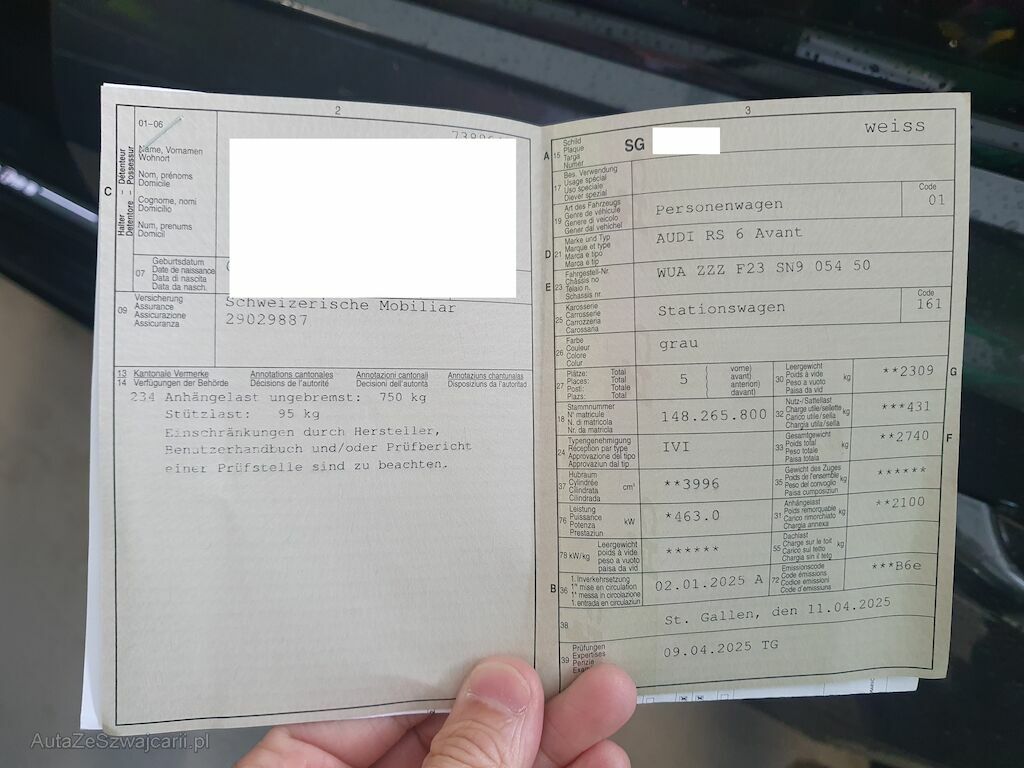 2
01-06
Halter Détenteur
Detentore Possessur
C
Name, Vornamen
Wohnort
Nom, prénoms
Domicile
Cognome, nomi
Domicilio
Num, prenums
Domicil
07
Geburtsdatum
Date de naissance
Data di nascita
Data da nasch.
09
Versicherung
Assurance
Assicurazione
Assicuranza
Schweizerische Mobiliar
29029887
13 Kantonale Vermerke Annotations cantonales Annotazioni cantonali Annotaziuns chantunalas
14 Verfügungen der Behörde Décisions de l'autorité Decisioni dell'autorità Disposiziuns da l'autoritad
234 Anhängelast ungebremst: 750 kg
Stützlast: 95 kg
Einschränkungen durch Hersteller,
Benutzerhandbuch und/oder Prüfbericht
einer Prüfstelle sind zu beachten.
3
A 15
Schild
Plaque
Targa
Numer
SG
weiss
17
Bes. Verwendung
Usage spécial
Uso speciale
Diever spezial
19
Art des Fahrzeugs
Genre de véhicule
Genere di veicolo
Gener dal vehichel
Personenwagen
Code
01
D 21
Marke und Typ
Marque et type
Marca e tipo
Marca e tip
AUDI RS 6 Avant
E 23
Fahrgestell-Nr.
Châssis no
Telaio n.
Schassis nr.
WUA ZZZ F23 SN9 054 50
25
Karosserie
Carrosserie
Carrozzeria
Carossaria
Stationswagen
Code
161
26
Farbe
Couleur
Colore
Colur
grau
27
Plätze: Total
Places: Total
Posti: Totale
Plazs: Total
5
vorne)
avant)
anteriori)
davant)
30
Leergewicht
Poids à vide
Peso a vuoto
Paisa da vid
kg
**2309
G
18
Stammnummer
N° matricule
N. di matricola
Nr. da matricla
148.265.800
32
Nutz-/Sattellast
Charge utile/sellette
Carico utile/sella
Chargia utila/sella
kg
***431
24
Typengenehmigung
Réception par type
Approvazione del tipo
Approvaziun dal tip
IVI
33
Gesamtgewicht
Poids total
Peso totale
Paisa totala
kg
**2740
F
37
Hubraum
Cylindrée
Cilindrata
Cilindrada
cm³
**3996
35
Gewicht des Zuges
Poids de l'ensemble
Peso del convoglio
Paisa cumposiziun
kg
******
76
Leistung
Puissance
Potenza
Prestaziun
kW
*463.0
31
Anhängelast
Poids remorquable
Carico rimorchiato
Chargia annexa
kg
**2100
78 kW/kg
Leergewicht
poids à vide
peso a vuoto
paisa da vid
******
55
Dachlast
Charge sur le toit
Carico sul tetto
Chargia sin il tetg
kg
B 36
1. Inverkehrsetzung
1re mise en circulation
1a messa in circolazione
1. entrada en circulaziun
02.01.2025 A
72
Emissionscode
Code émissions
Codice emissioni
Code d'emissiuns
***B6e
38
St. Gallen, den 11.04.2025
39
Prüfungen
Expertises
Perizie
09.04.2025 TG
AutaZeSzwajcarii.pl